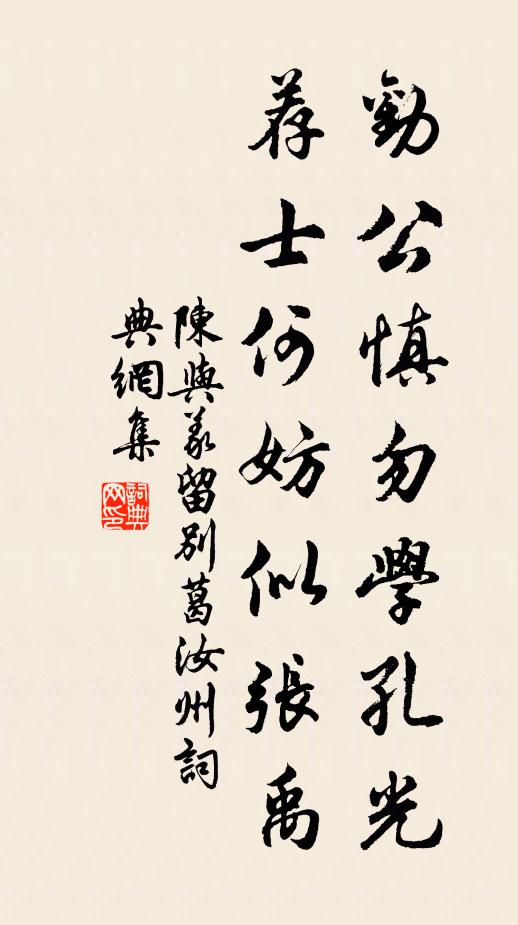 勸公慎勿學孔光
荐士何妨似張禹
陳與義留別葛汝州詞
典網集
詞典网印